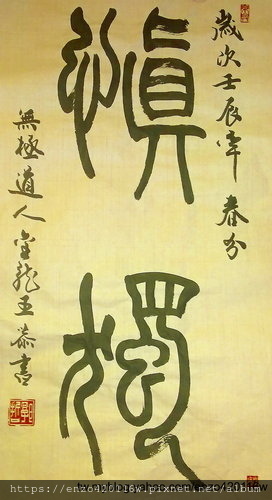 歲次壬辰年 春分
慎獨
無極道人 龍王恭書
https://enzo400116w.pixnet.net/album